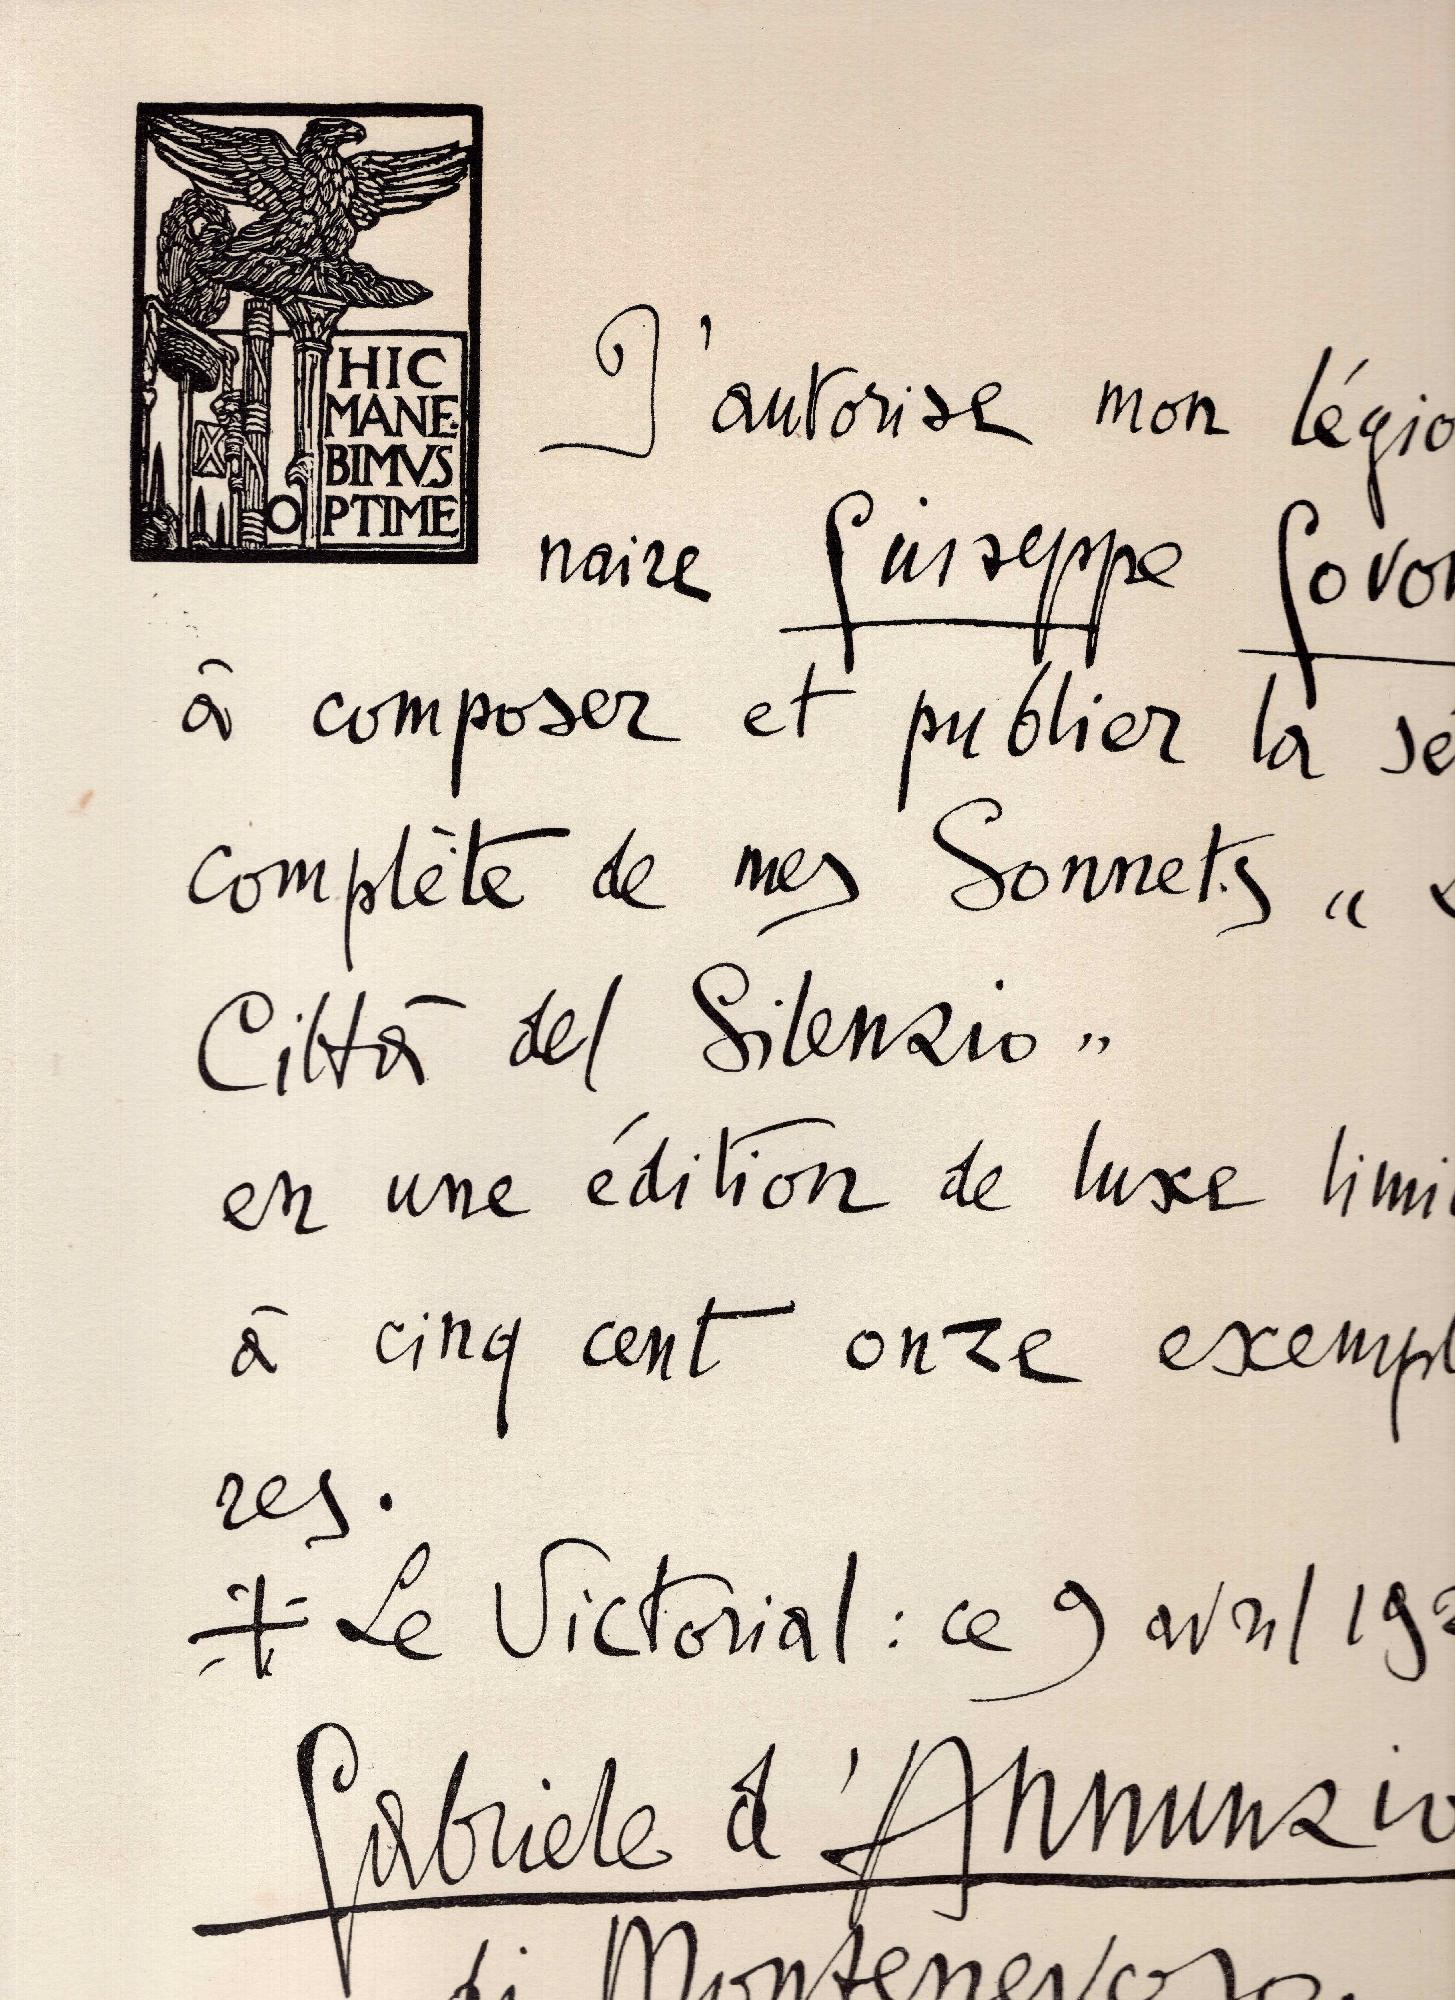 HIC
MANE·
BIMVS
OPTIME
J'autorise mon légio
naire Giuseppe Govon
à composer et publier la sé
complète de mes Sonnets „
Città del Silenzio „
en une édition de luxe limi
à cinq cent onze exempl
res.
Le Victorial : ce 9 avril 19
Gabriele d'Annunzio
di Montenevoso.